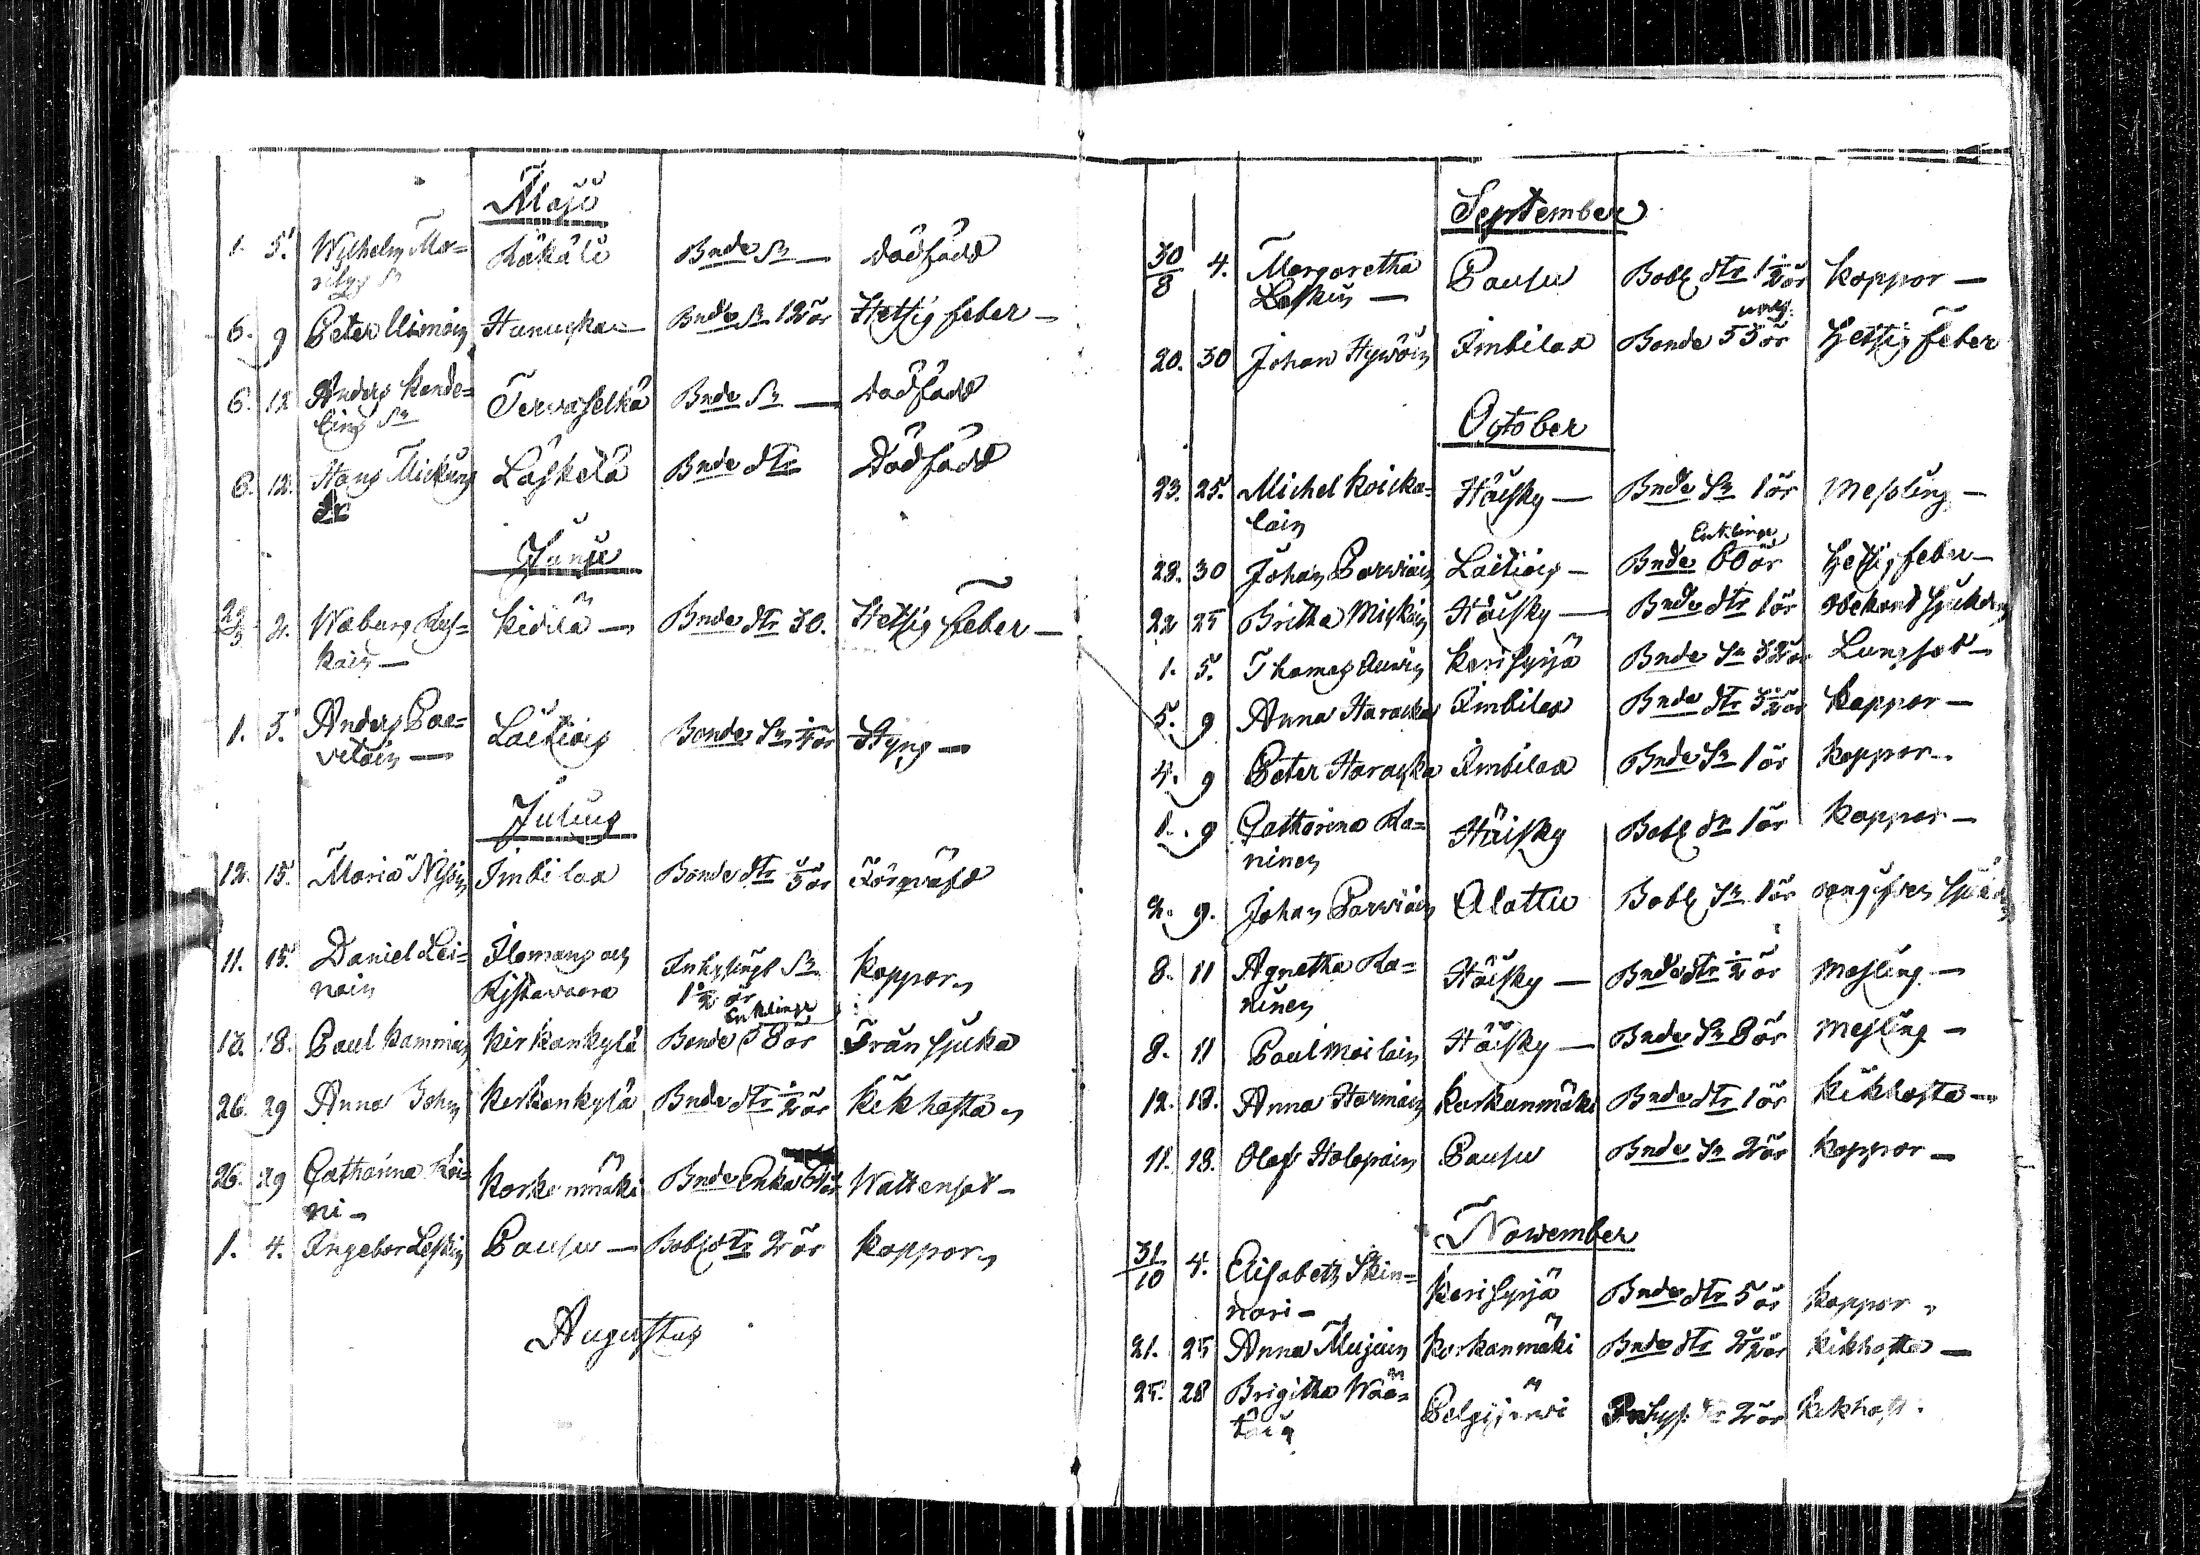 Maji
1. 5. Wilhelm Mo=
nitzs Sn Räkäli Bnde Sn — Dödfödd
6. 9 Peter Uimain Hunuska — Bnde Sn 12 år Hetsig feber —
6. 12 Anders Konde=
lins Sn Tervaselkä Bnde Sn — Dödfödd
6. 12. Hans Mickuns
dr Läskelä Bnde dtr Dödfödd
Junii
29/5 2. Waburg Rus=
kain — Kidilä — Bnde dtr 30. Hetsig Feber —
1. 3. Anders Paa=
velain — Läitiois Bonde Sn ¼ år Styng —
Julius
12. 15. Maria Nissin Imbilax Bonde dtr ¾ år Förqväfd
11. 15. Daniel Lei=
noin Ilomans och
Kystavaara Inhysings Sn
1½ år Koppor
13. 18. Paul Kammain Kirkonkylä Enklinge
Bonde 58 år Från sjuka
26. 29 Anna John Kirkonkylä Bnde dtr ½ år Kikhosta
26. 29 Catharina Koi=
ni — Korkanmäki Bnde Enka 64 år Wattensot —
1. 4. Ingebor Leskin Pausu — Bobs dtr 2 år Koppor
Augustus
September
30/8 4. Margaretha
Leskin — Pausu Bobs dtr 1½ år Koppor —
20. 30 Johan Hyvöin Imbilax Bonde 55 år Hetsig feber
October
23. 25. Michel Koicka=
lain Häisky — Bnde Sn 1 år Messling —
28. 30 Johan Parviain Läitiois — Enklinge
Bnde 60 år Hetsig feber —
22 25 Britha Miskin Häisky — Bnde dtr 1 år Obekand Sjukdom
1. 5. Thomas Auvin Kerisyrjä Bnde Sn 32 år Lungsot —
5. 9 Anna Haracka Imbilax Bnde dtr 3½ år Koppor —
4. 9 Peter Haracka Imbilax Bnde Sn 1 år Koppor —
1. 9 Catharina Ra=
ninen Häisky Bobs dr 1 år Koppor —
2. 9. Johan Parviain Alattu Bobs Sn 1 år
8. 11 Agnetha Ra=
ninen Häisky — Bnde dtr ½ år Messling —
8. 11 Paul Moilain Häisky — Bnde Sn 8 år Messling —
12. 18. Anna Harmain Korkanmäki Bnde dtr 1 år Kikhosta —
11. 18. Olof Holopain Pausu Bnde Sn 2 år Koppor —
November
31/10 4. Elisabeth Skin=
nari — Kerisyrjä Bnde dtr 5 år Koppor
21. 25 Anna Mujuin Korkanmäki Bnde dtr 2½ år Kikhosta —
25. 28 Brigitha Wää=
täin Pelgjärvi Inhys. dtr 2 år Kikhost.